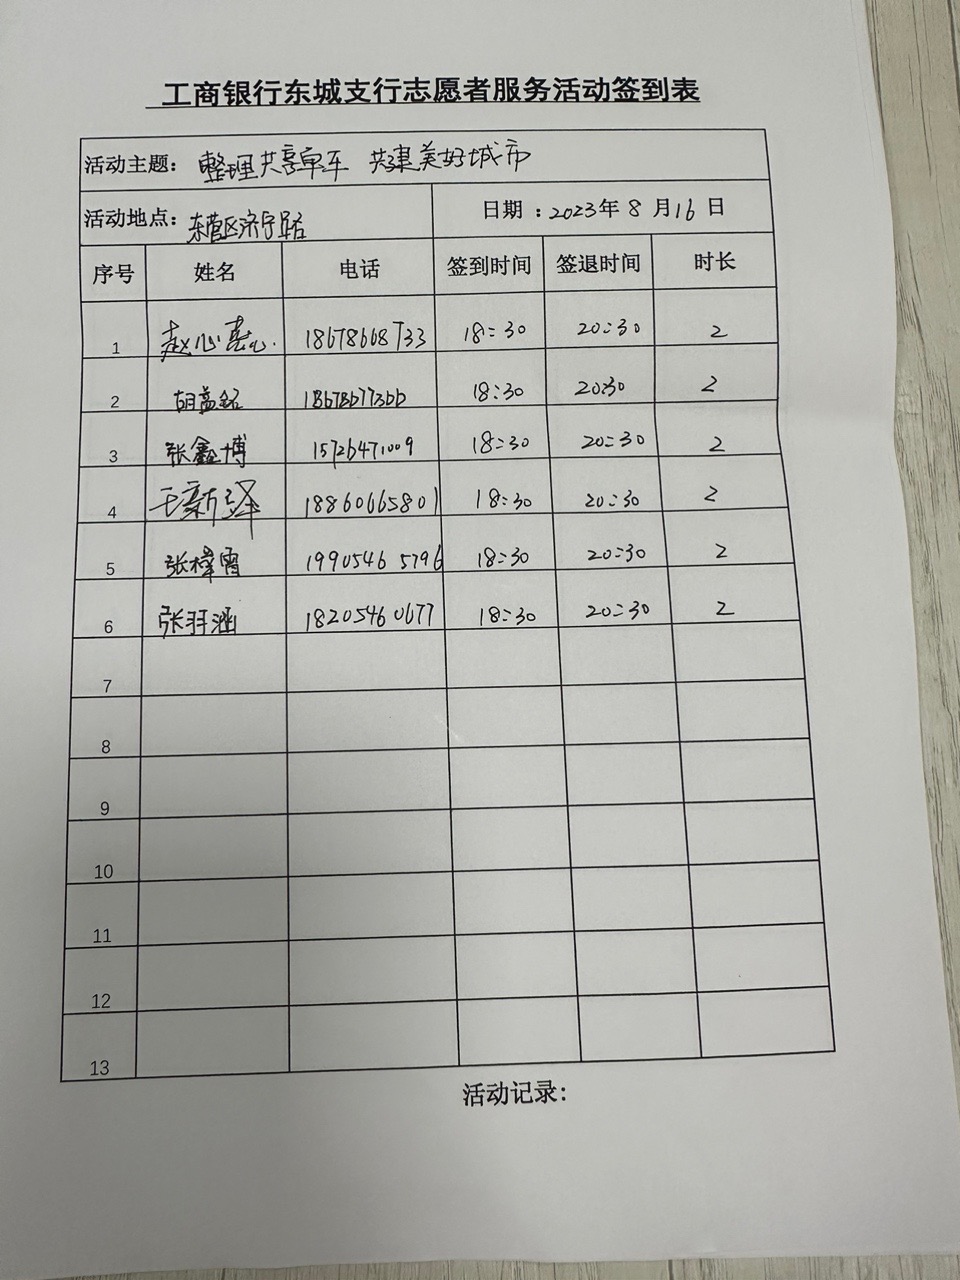 工商银行东城支行志愿者服务活动签到表
活动主题: 整理共享单车 共建美好城市
活动地点: 东营区济宁路 日期 : 2023年 8 月 16 日
序号 姓名 电话 签到时间 签退时间 时长
1 赵心 18678668733 18:30 20:30 2
2 胡益铭 18678677366 18:30 20:30 2
3 张鑫博 15726471009 18:30 20:30 2
4 王新泽 18860665801 18:30 20:30 2
5 张樟霄 19905465796 18:30 20:30 2
6 张羽涵 18205460677 18:30 20:30 2
7
8
9
10
11
12
13
活动记录: